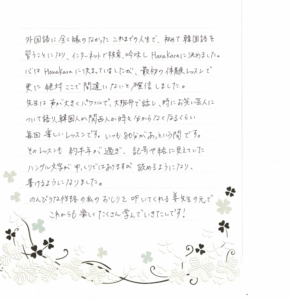 外国語に全く縁のなかったこれまでの人生で、初めて韓国語を
習うことになり、インターネットで検索、吟味しHanaKaraに決めました。
心はHanaKaraに決まっていましたが、最初の体験レッスンで
更に絶対ここで間違いないと確信しました。
先生は声が大きくパワフルで、大阪弁で話し、時にお笑い芸人に
ついて語り、韓国人か関西人か時々分からなくなるくらい
毎回楽しいレッスンです。いつも50分があっという間です。
そのレッスンも約半年が過ぎ、記号や絵に見えていた
ハングル文字が少しずつではありますが読めるようになり、
書けるようになりました。
のんびりな性格の私のおしりを叩いてくれる姜先生の元で
これからも楽しくたくさん学んでいきたいです！